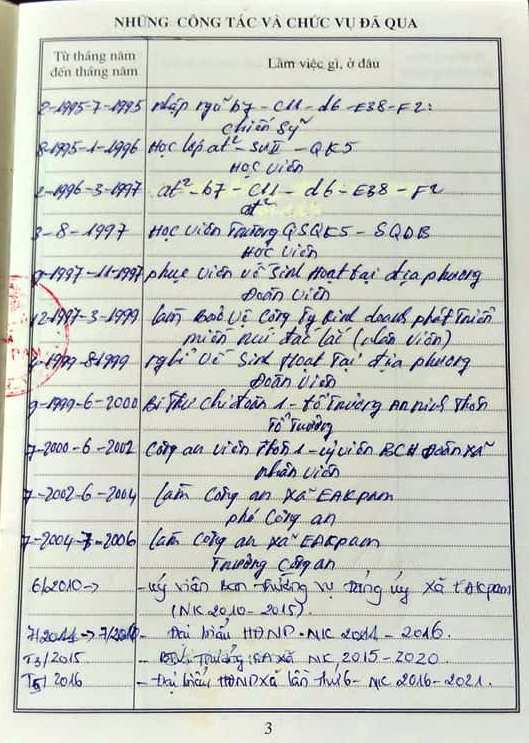 NHỮNG CÔNG TÁC VÀ CHỨC VỤ ĐÃ QUA
Từ tháng năm
đến tháng năm
Làm việc gì, ở đâu
2-1995-7-1995 nhập ngũ b7 - C11 - d6 - E38 - F2:
Chiến Sỹ
8-1995-1-1996 Học lớp at² - - QK5
Học viên
2-1996-3-1997 at² - b7 - C11 - d6 - E38 - F2
at²
3-8-1997 Học viên Trường QSQK5 - SQDB
Học viên
9-1997-11-1997 phục viên về Sinh Hoạt tại địa phương
Đoàn viên
12-1997-3-1999 làm Bảo Vệ Công Ty Kinh doanh phát triển
miền núi đắc lắc (nhân viên)
4-1999-8-1999 nghỉ về Sinh Hoạt Tại địa phương
Đoàn viên
9-1999-6-2000 Bí Thư chi đoàn 1 - tổ Trưởng An ninh Thôn
Tổ Trưởng
7-2000-6-2002 Công an viên Thôn 1 - uỷ viên BCH Đoàn xã
nhân viên
7-2002-6-2004 làm Công an xã EAKpam
phó Công an
7-2004-7-2006 làm Công an xã EAKpam
Trưởng Công an
6/2010-> - uỷ viên Ban Thường vụ Đảng ủy xã EAKpam
(NK 2010-2015).
7/2011-> 7/2016 - Đại biểu HĐND - NK 2011 - 2016.
T3/2015 - Trưởng CA xã NK, 2015-2020
T5/2016 - Đại biểu HĐND xã lần thứ 6 - NK 2016-2021.
3